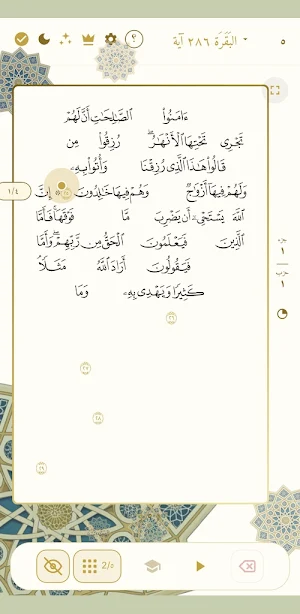 ٥
البَقَرَة ٢٨٦ آية
؟
ءَامَنُوا۟ ٱلصَّـٰلِحَـٰتِ أَنَّ لَهُمْ
تَجْرِى تَحْتِهَا ٱلْأَنْهَـٰرُ ۖ رُزِقُوا۟ مِن
قَالُوا۟ هَـٰذَا ٱلَّذِى رُزِقْنَا وَأُتُوا۟ بِهِۦ
وَلَهُمْ فِيهَآ أَزْوَٰجٌ وَهُمْ فِيهَا خَـٰلِدُونَ إِنَّ
١/٤
ٱللَّهَ يَسْتَحْىِۦٓ أَن يَضْرِبَ مَّا فَوْقَهَا ۚ فَأَمَّا
ٱلَّذِينَ فَيَعْلَمُونَ ٱلْحَقُّ مِن رَّبِّهِمْ ۖ وَأَمَّا
جزء
١
فَيَقُولُونَ أَرَادَ ٱللَّهُ مَثَلًا
حزب
١
كَثِيرًا وَيَهْدِى بِهِۦ وَمَا
٢٦
٢٧
٢٨
٢٩
2/٥